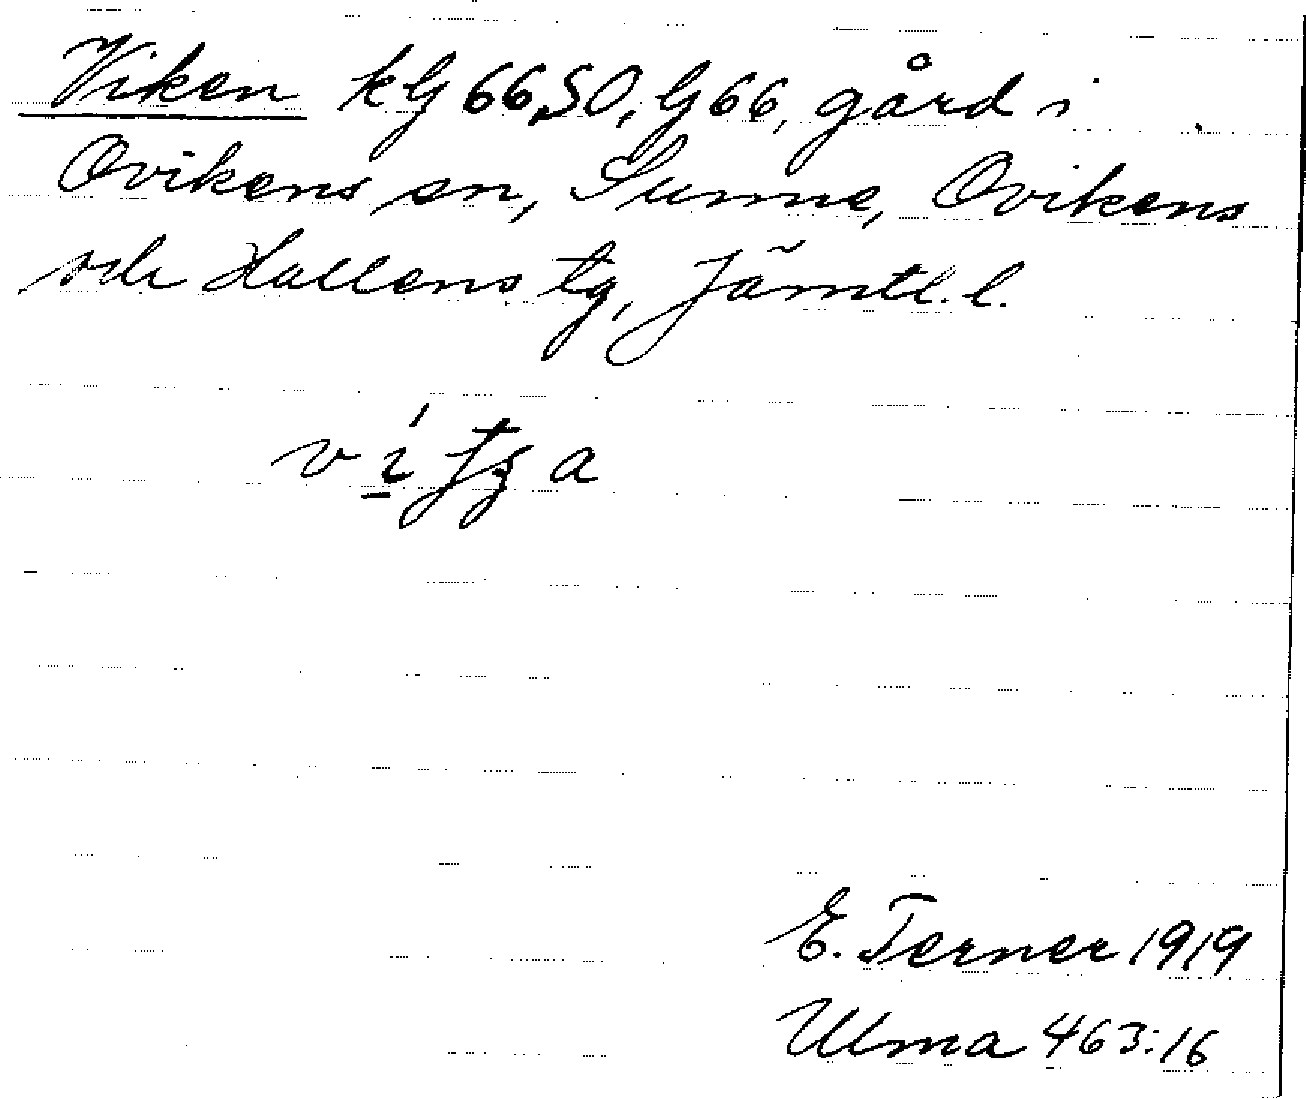 Viken kG 66,SO, G 66, gård i
Ovikens sn, Sunne, Ovikens
och Hallens tg, Jämtl. l.
E. Terner 1919
Ulma 463:16